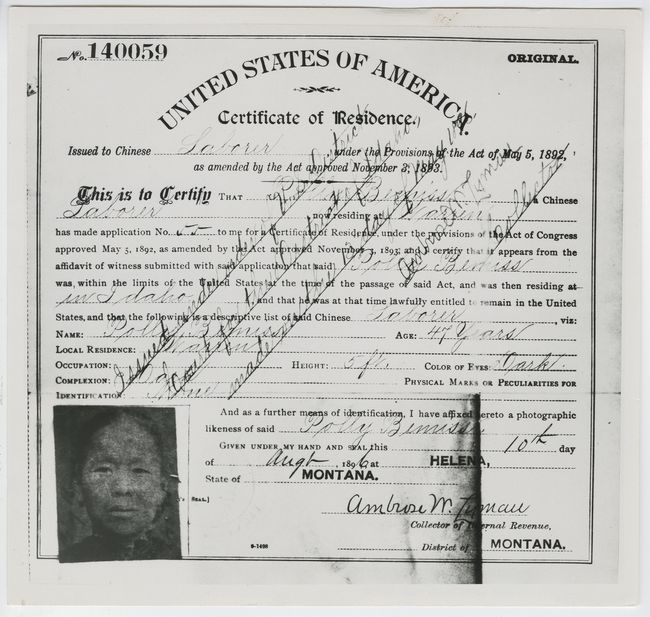 No. 140059
ORIGINAL.
UNITED STATES OF AMERICA.
Certificate of Residence.
Issued to Chinese Laborer under the Provisions of the Act of May 5, 1892,
as amended by the Act approved November 3, 1893.
This is to Certify THAT Polly Bemiss a Chinese
Laborer now residing at Warren
has made application No. 55 to me for a Certificate of Residence, under the provisions of the Act of Congress
approved May 5, 1892, as amended by the Act approved November 3, 1893, and I certify that it appears from the
affidavit of witness submitted with said application that said Polly Bemiss
was within the limits of the United States at the time of the passage of said Act, and was then residing at
in Idaho, and that he was at that time lawfully entitled to remain in the United
States, and that the following is a descriptive list of said Chinese Laborer, viz:
NAME: Polly Bemiss AGE: 47 Years
LOCAL RESIDENCE: Warren
OCCUPATION: HEIGHT: 5 ft. COLOR OF EYES: Dark
COMPLEXION: PHYSICAL MARKS OR PECULIARITIES FOR
IDENTIFICATION: None
Issued under
Court made
Ambrose W. Lyman
Collector
And as a further means of identification, I have affixed hereto a photographic
likeness of said Polly Bemiss
GIVEN UNDER MY HAND AND SEAL this 10th day
of Augt, 1896 at HELENA,
State of MONTANA.
SEAL.]
Ambrose W. Lyman
Collector of Internal Revenue,
District of MONTANA.
9-1498